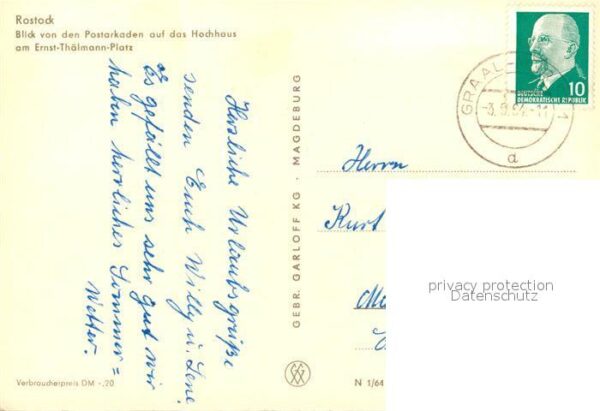 Rostock
Blick von den Postarkaden auf das Hochhaus
am Ernst-Thälmann-Platz
Herzliche Urlaubsgrüße
senden Euch Willy u. Lene
Es gefällt uns sehr gut wir
haben herrliches Sommer=
Wetter.
GEBR. GARLOFF KG · MAGDEBURG
DEUTSCHE
DEMOKRATISCHE REPUBLIK
10
GRAAL
1
a
Herrn
Kurt
privacy protection
Datenschutz
Verbraucherpreis DM -.20
N 1/64